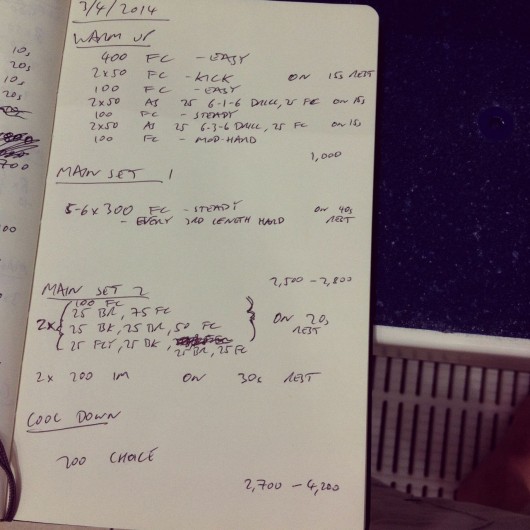 3/4/2014
WARM UP
400 FC - EASY
2x50 FC - KICK ON 15s REST
100 FC - EASY
2x50 AS 25 6-1-6 DRILL, 25 FC ON 15s
100 FC - STEADY
2x50 AS 25 6-3-6 DRILL, 25 FC ON 15s
100 FC - MOD-HARD
1,000
MAIN SET 1
5-6x300 FC - STEADY ON 40s
- EVERY 3RD LENGTH HARD REST
2,500 - 2,800
MAIN SET 2
100 FC
25 BR, 75 FC
2x 25 BK, 25 BR, 50 FC ON 20s REST
25 FLY, 25 BK,
25 BR, 25 FC
2x 200 IM ON 30s REST
COOL DOWN
200 CHOICE
2,700 - 4,200
10s
20s
10s
20s
700
00